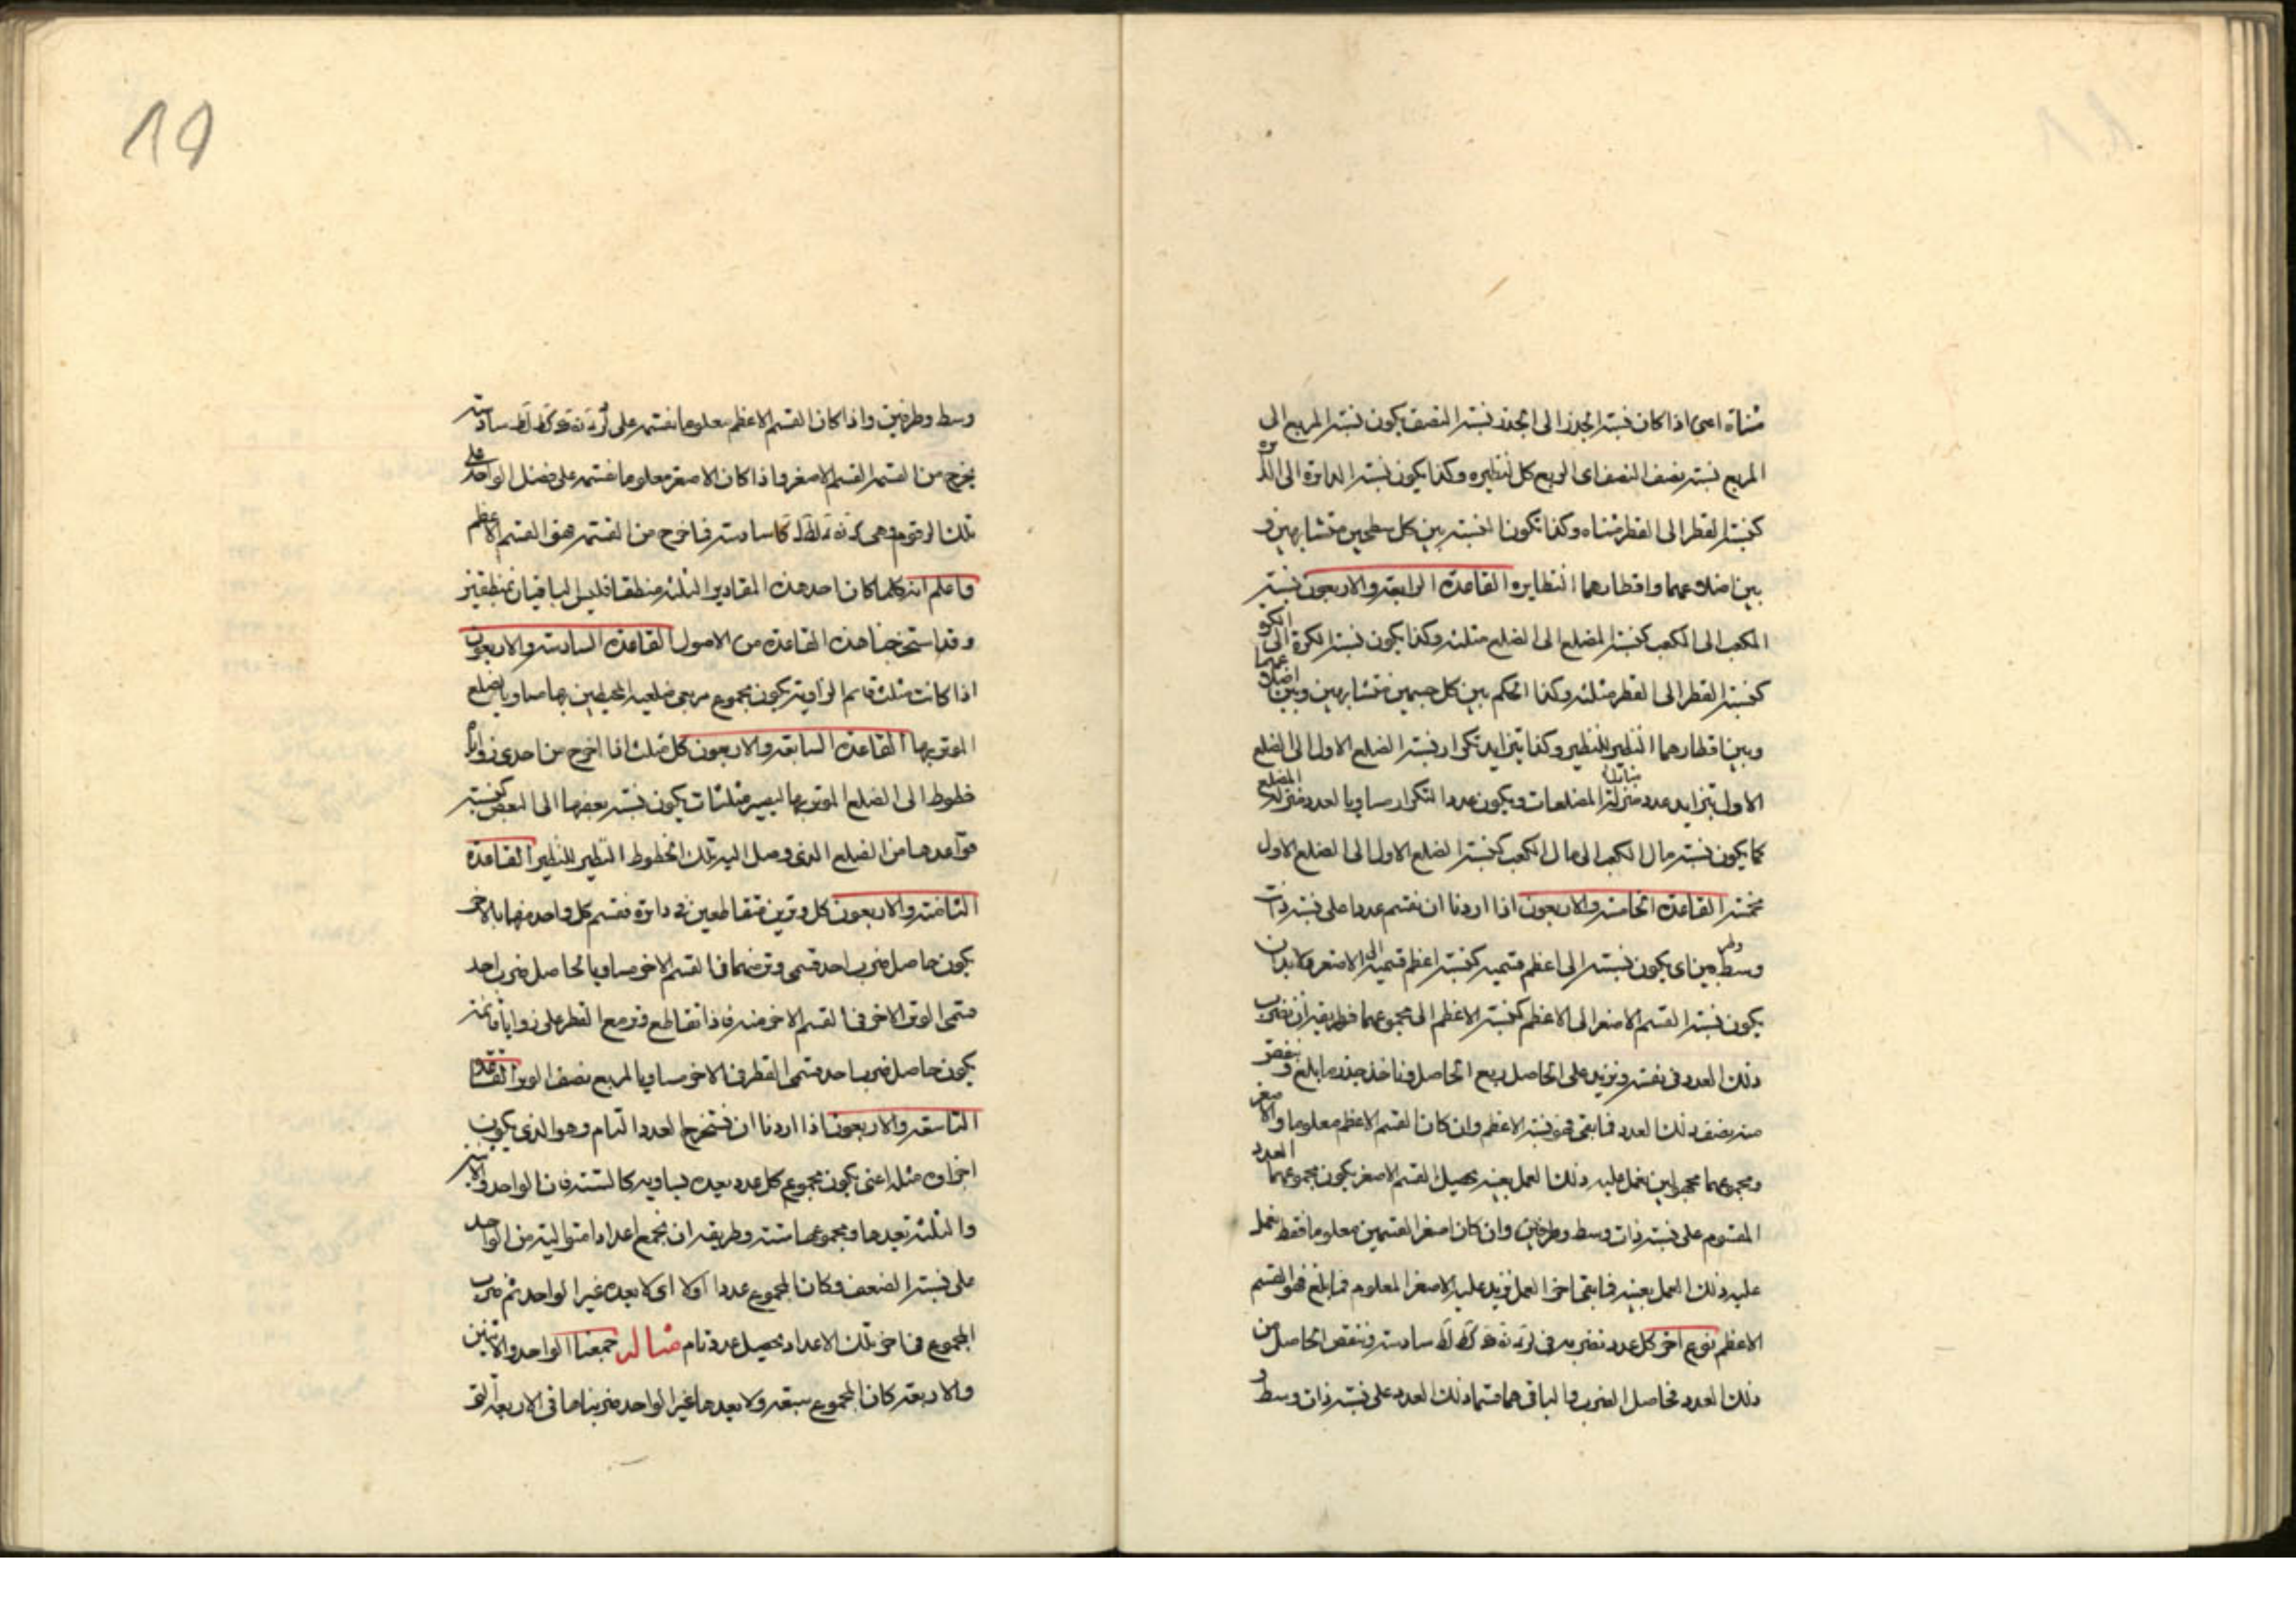 مثناة اعنى اذا كان نسبة الجذر الى الجذر نسبة النصف يكون نسبة المربع الى
المربع نسبة نصف النصف اى الربع كل لنظيره وكذا يكون نسبة الدايرة الى الدايرة
كنسبة القطر الى القطر مثناه وكذا تكون النسبة بين كل سطحين متشابهين و
بين اضلاعهما واقطارهما النظايره القاعدة الرابعة والاربعون نسبة
المكعب الى المكعب كنسبة الضلع الى الضلع مثلثة وكذا يكون نسبة الكرة الى الكرة
كنسبة القطر الى القطر مثلثة وكذا الحكم بين كل جسمين متشابهين وبين اضلاعهما
وبين اقطارهما النظير للنظير وكذا يتزايد تكرار نسبة الضلع الاول الى الضلع
الاول بتزايد عدد منزلة المضلعات ويكون عدد التكرار مساويا لعدد منزلة المضلع
كما يكون نسبة مال الكعب الى مال الكعب كنسبة الضلع الاول الى الضلع الاول
مخمسة القاعدة الخامسة والاربعون اذا اردنا ان نقسم عددا على نسبة ذات
وسط وطرفين اى يكون نسبته الى اعظم قسميه كنسبة اعظم قسميه الى الاصغر ولابد ان
يكون نسبة القسم الاصغر الى الاعظم كنسبة الاعظم الى مجموعهما فطريقه ان نضرب
ذلك العدد فى نفسه ونزيد على الحاصل ربع الحاصل وناخذ جذر ما بلغ وننقص
منه نصف ذلك العدد فما بقى فهو قسمه الاعظم وان كان القسم الاعظم معلوما والاصغر
ومجموعهما مجهولين نعمل عليه ذلك العمل بعينه يحصل القسم الاصغر يكون مجموعهما العدد
المقسوم على نسبة ذات وسط وطرفين وان كان اصغر القسمين معلوما فقط نعمل
عليه ذلك العمل بعينه فما بقى اخر العمل نزيد عليه الاصغر المعلوم فما بلغ فهو القسم
الاعظم نوع اخر كل عدد نضربه فى سادسة وننقص الحاصل من
ذلك العدد فحاصل الضرب والباقى هما قسما ذلك العدد على نسبة ذات وسط و
19
وسط وطرفين واذا كان القسم الاعظم معلوما نقسمه على سادسة
يخرج من القسمة القسم الاصغر واذا كان الاصغر معلوما نقسمه على فضل الواحد على
تلك الرقوم وهى سادسة فما خرج من القسمة هو القسم الاعظم
واعلم انه كلما كان احد هذه المقادير الثلثة منطقا فليس الباقيان بمنطقين
وقد استخرجنا هذه القاعدة من الاصول القاعدة السادسة والاربعون
اذا كانت مثلث قايم الزاوية يكون مجموع مربعى ضلعيه المحيطين بها مساويا لضلع
الموتر بها القاعدة السابعة والاربعون كل مثلث اذا اخرج من احدى زواياه
خطوط الى الضلع الموتر بها ليصير مثلثات يكون نسبة بعضها الى البعض كنسبة
قواعدها من الضلع الذى وصل اليه تلك الخطوط النظير للنظير القاعدة
الثامنة والاربعون كل وترين متقاطعين فى دايرة فقسم كل واحد منهما بالاخر
يكون حاصل ضرب احد قسمى وتر منهما فى القسم الاخر مساويا لحاصل ضرب احد
قسمى الوتر الاخر فى القسم الاخر منه فاذا تقاطع وتر مع القطر على زوايا قايمة
يكون حاصل ضرب احد قسمى القطر فى الاخر مساويا لمربع نصف الوتر القاعدة
التاسعة والاربعون اذا اردنا ان نستخرج العدد التام وهو الذى يكون
اجزاؤه مثله اعنى يكون مجموع كل عدد يعده يساويه كالستة فان الواحد والاثنين
والثلثة تعدها ومجموعها ستة وطريقه ان نجمع اعدادا متوالية من الواحد
على نسبة الضعف فكان المجموع عددا اولا اى لا يعده غير الواحد ثم نضرب
المجموع فى اخر تلك الاعداد يحصل عدد تام مثاله جمعنا الواحد والاثنين
والاربعة كان المجموع سبعة ولا يعدها غير الواحد ضربناها فى الاربعة التى